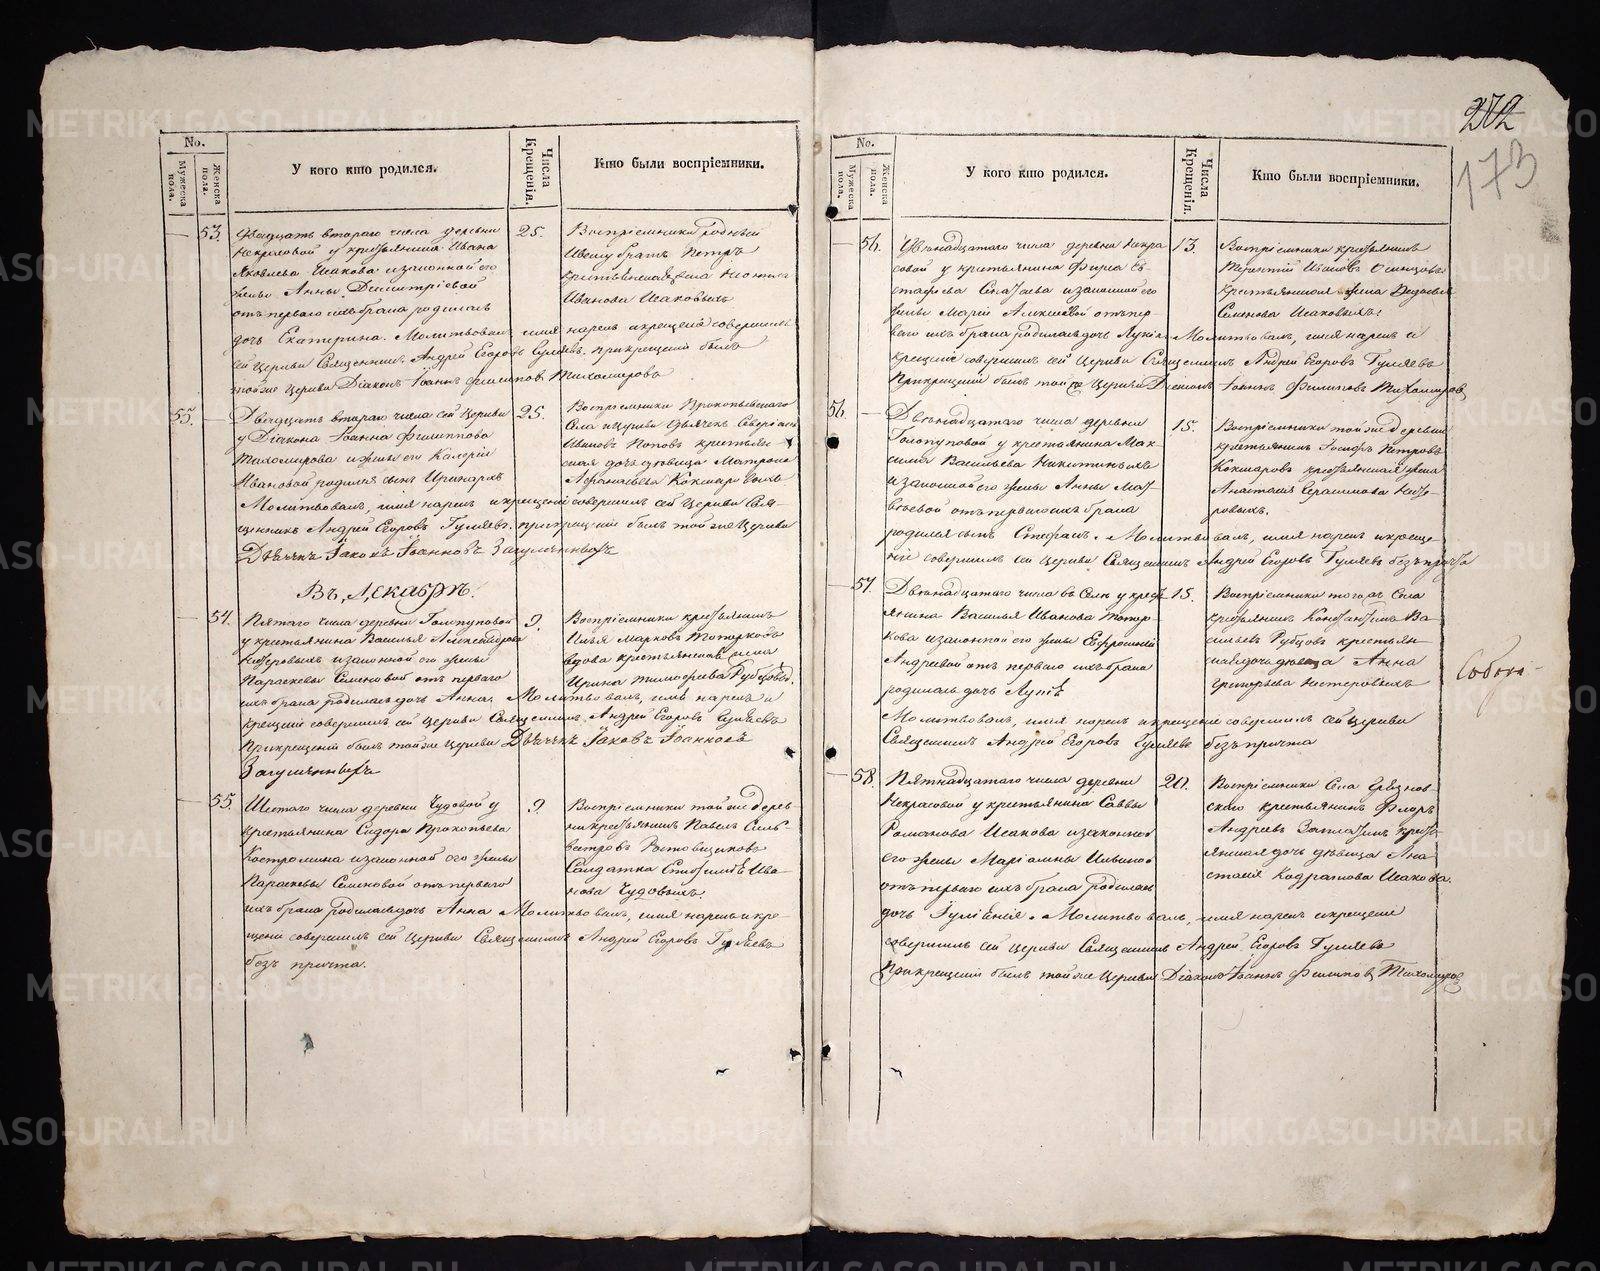 No.
Мужеска пола.
Женска пола.
У кого кто родился.
Числа Крещенія.
Кто были воспріемники.
53.
Двадцать втораго числа деревни
Некрасовой у крестьянина Ивана
Яковлева Исакова и законной его
жены Анны Димитріевой
отъ перваго ихъ брака родилась
дочь Екатерина. Молитвовалъ имя нарекъ и крещеніе совершилъ
сей Церкви Священникъ Андрей Егоровъ Гуляевъ. при крещеніи былъ
той же Церкви Діаконъ Іоаннъ Филиповъ Тихомировъ
25.
Воспріемники родный
братъ Петръ
крестьянская жена
Иванова Исаковыхъ
55.
Двадцать втораго числа сей Церкви
у Діакона Іоанна Филиппова
Тихомирова и жены его Валеріи
Ивановой родился сынъ Иринархъ
Молитвовалъ, имя нарекъ и крещеніе совершилъ сей Церкви Свя-
щенникъ Андрей Егоровъ Гуляевъ. при крещеніи былъ той же Церкви
Дьячекъ Іаковъ Іоанновъ
25.
Воспріемники Прокопьевскаго
Села Церкви Дьячекъ
Ивановъ Поповъ крестьян-
ская дочь девица Матрона
Афанасьева Кокшаровыхъ
Въ Декабрѣ.
54.
Пятаго числа деревни Голопуповой
у крестьянина Василья Александрова
Нестеровыхъ и законной его жены
Параскевы Семеновой отъ перваго
ихъ брака родилась дочь Анна. Молитвовалъ, имя нарекъ и
крещеніе совершилъ сей Церкви Священникъ Андрей Егоровъ Гуляевъ
При крещеніи былъ той же Церкви Дьячекъ Іаковъ Іоанновъ
9.
Воспріемники крестьянинъ
Илья Марковъ Топорковъ
вдова крестьянская жена
Ирина Тимофеева Рубцовыхъ
55.
Шестаго числа деревни Чудовой у
крестьянина Сидора Прокопьева
Костромина и законной его жены
Параскевы Семеновой отъ перваго
ихъ брака родилась дочь Анна Молитвовалъ, имя нарекъ и кре-
щеніе совершилъ сей Церкви Священникъ Андрей Егоровъ Гуляевъ
безъ причта.
9.
Воспріемники той же дерев-
ни крестьянинъ Павелъ Силь-
вестровъ Ростовщиковъ
Солдатка Ива-
нова Чудовыхъ.
272
173
No.
Мужеска пола.
Женска пола.
У кого кто родился.
Числа Крещенія.
Кто были воспріемники.
56.
Двѣнадцатаго числа деревни Некра
совой у крестьянина Фирса Ев-
стафіева и законной его
жены Маріи Алексіевой отъ пер
ваго ихъ брака родилась дочь Лукія Молитвовалъ, имя нарекъ и
крещеніе совершилъ сей Церкви Священникъ Андрей Егоровъ Гуляевъ
При крещеніи былъ той же Церкви Діаконъ Іоаннъ Филиповъ Тихомировъ
13.
Воспріемники крестьянинъ
Терентій Ивановъ Осинцовъ
крестьянская жена
Семенова Исаковыхъ.
56.
Двѣнадцатаго числа деревни
Голопуповой у крестьянина Мак-
сима Васильева Никитиныхъ
и законной его жены Анны Мат-
вѣевой отъ перваго ихъ брака
родился сынъ Стефанъ. Молитвовалъ, имя нарекъ и креще-
ніе совершилъ сей Церкви Священникъ Андрей Егоровъ Гуляевъ безъ причта
15.
Воспріемники той же деревни
крестьянинъ Іосифъ Петровъ
Кокшаровъ крестьянская жена
Анастасія Герасимова Несте-
ровыхъ.
57.
Двѣнадцатаго числа въ Селѣ у крест-
янина Василья Иванова Топор-
кова и законной его жены Ефросиніи
Андреевой отъ перваго ихъ брака
родилась дочь Лукія
Молитвовалъ, имя нарекъ и крещеніе совершилъ сей Церкви
Священникъ Андрей Егоровъ Гуляевъ безъ причта
15.
Воспріемники того же Села
крестьянинъ Константинъ Ва
сильевъ Рубцовъ крестьян-
ская дочь девица Анна
Григорьева Нестеровыхъ
58.
Пятнадцатаго числа деревни
Некрасовой у крестьянина Саввы
Романова Исакова и законной
его жены Маріамны Ильиной
отъ перваго ихъ брака родилась
дочь Іуліанія. Молитвовалъ, имя нарекъ и крещеніе
совершилъ сей Церкви Священникъ Андрей Егоровъ Гуляевъ
При крещеніи былъ той же Церкви Діаконъ Іоаннъ Филиповъ Тихомировъ
20.
Воспріемники Села Грязнов-
скаго крестьянинъ Флоръ
Андреевъ кресть-
янская дочь дѣвица Ана
стасія Кодратова Исакова.
METRIKI.GASO-URAL.RU